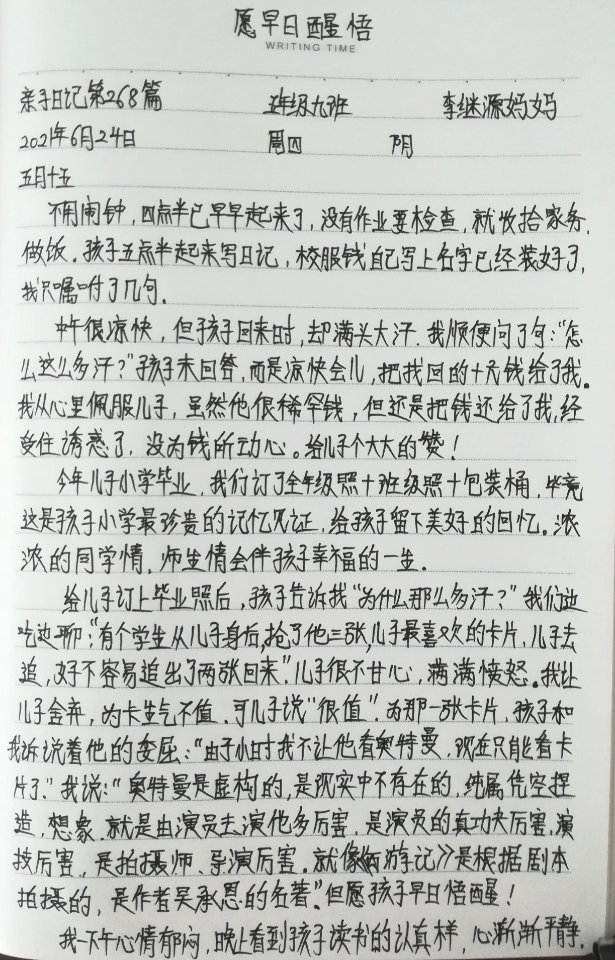 愿早日醒悟
WRITING TIME
亲子日记第268篇 五年级九班 李继源妈妈
2021年6月24日 周四 阴
五月十五
不用闹钟，四点半已早早起来了，没有作业要检查，就收拾家务，
做饭。孩子五点半起来写日记，校服钱自己写上名字已经装好了，
我只嘱咐了几句。
中午很凉快，但孩子回来时，却满头大汗。我顺便问了句：“怎
么这么多汗？”孩子未回答，而是凉快会儿，把找回的十元钱给了我。
我从心里佩服儿子，虽然他很稀罕钱，但还是把钱还给了我，经
受住诱惑了，没为钱所动心。给儿子个大大的赞！
今年儿子小学毕业，我们订了全年级照十班级照十包装桶，毕竟
这是孩子小学最珍贵的记忆见证，给孩子留下美好的回忆。浓
浓的同学情，师生情会伴孩子幸福的一生。
给儿子订上毕业照后，孩子告诉我“为什么那么多汗？”我们边
吃边聊：“有个学生从儿子身后，抢了他三张，儿子最喜欢的卡片，儿子去
追，好不容易追出了两张回来”。儿子很不甘心，满满愤怒。我让
儿子舍弃，为卡生气不值。可儿子说“很值”。为那一张卡片，孩子和
我诉说着他的委屈：“由于小时我不让他看奥特曼，现在只能看卡
片了。”我说：“奥特曼是虚构的，是现实中不存在的，纯属凭空捏
造，想象。就是由演员去演他多厉害，是演员的真功夫厉害，演
技厉害，是拍摄师、导演厉害。就像《西游记》是根据剧本
拍摄的，是作者吴承恩的名著”。但愿孩子早日悟醒！
我一下午心情郁闷，晚上看到孩子读书的认真样，心渐渐平静。